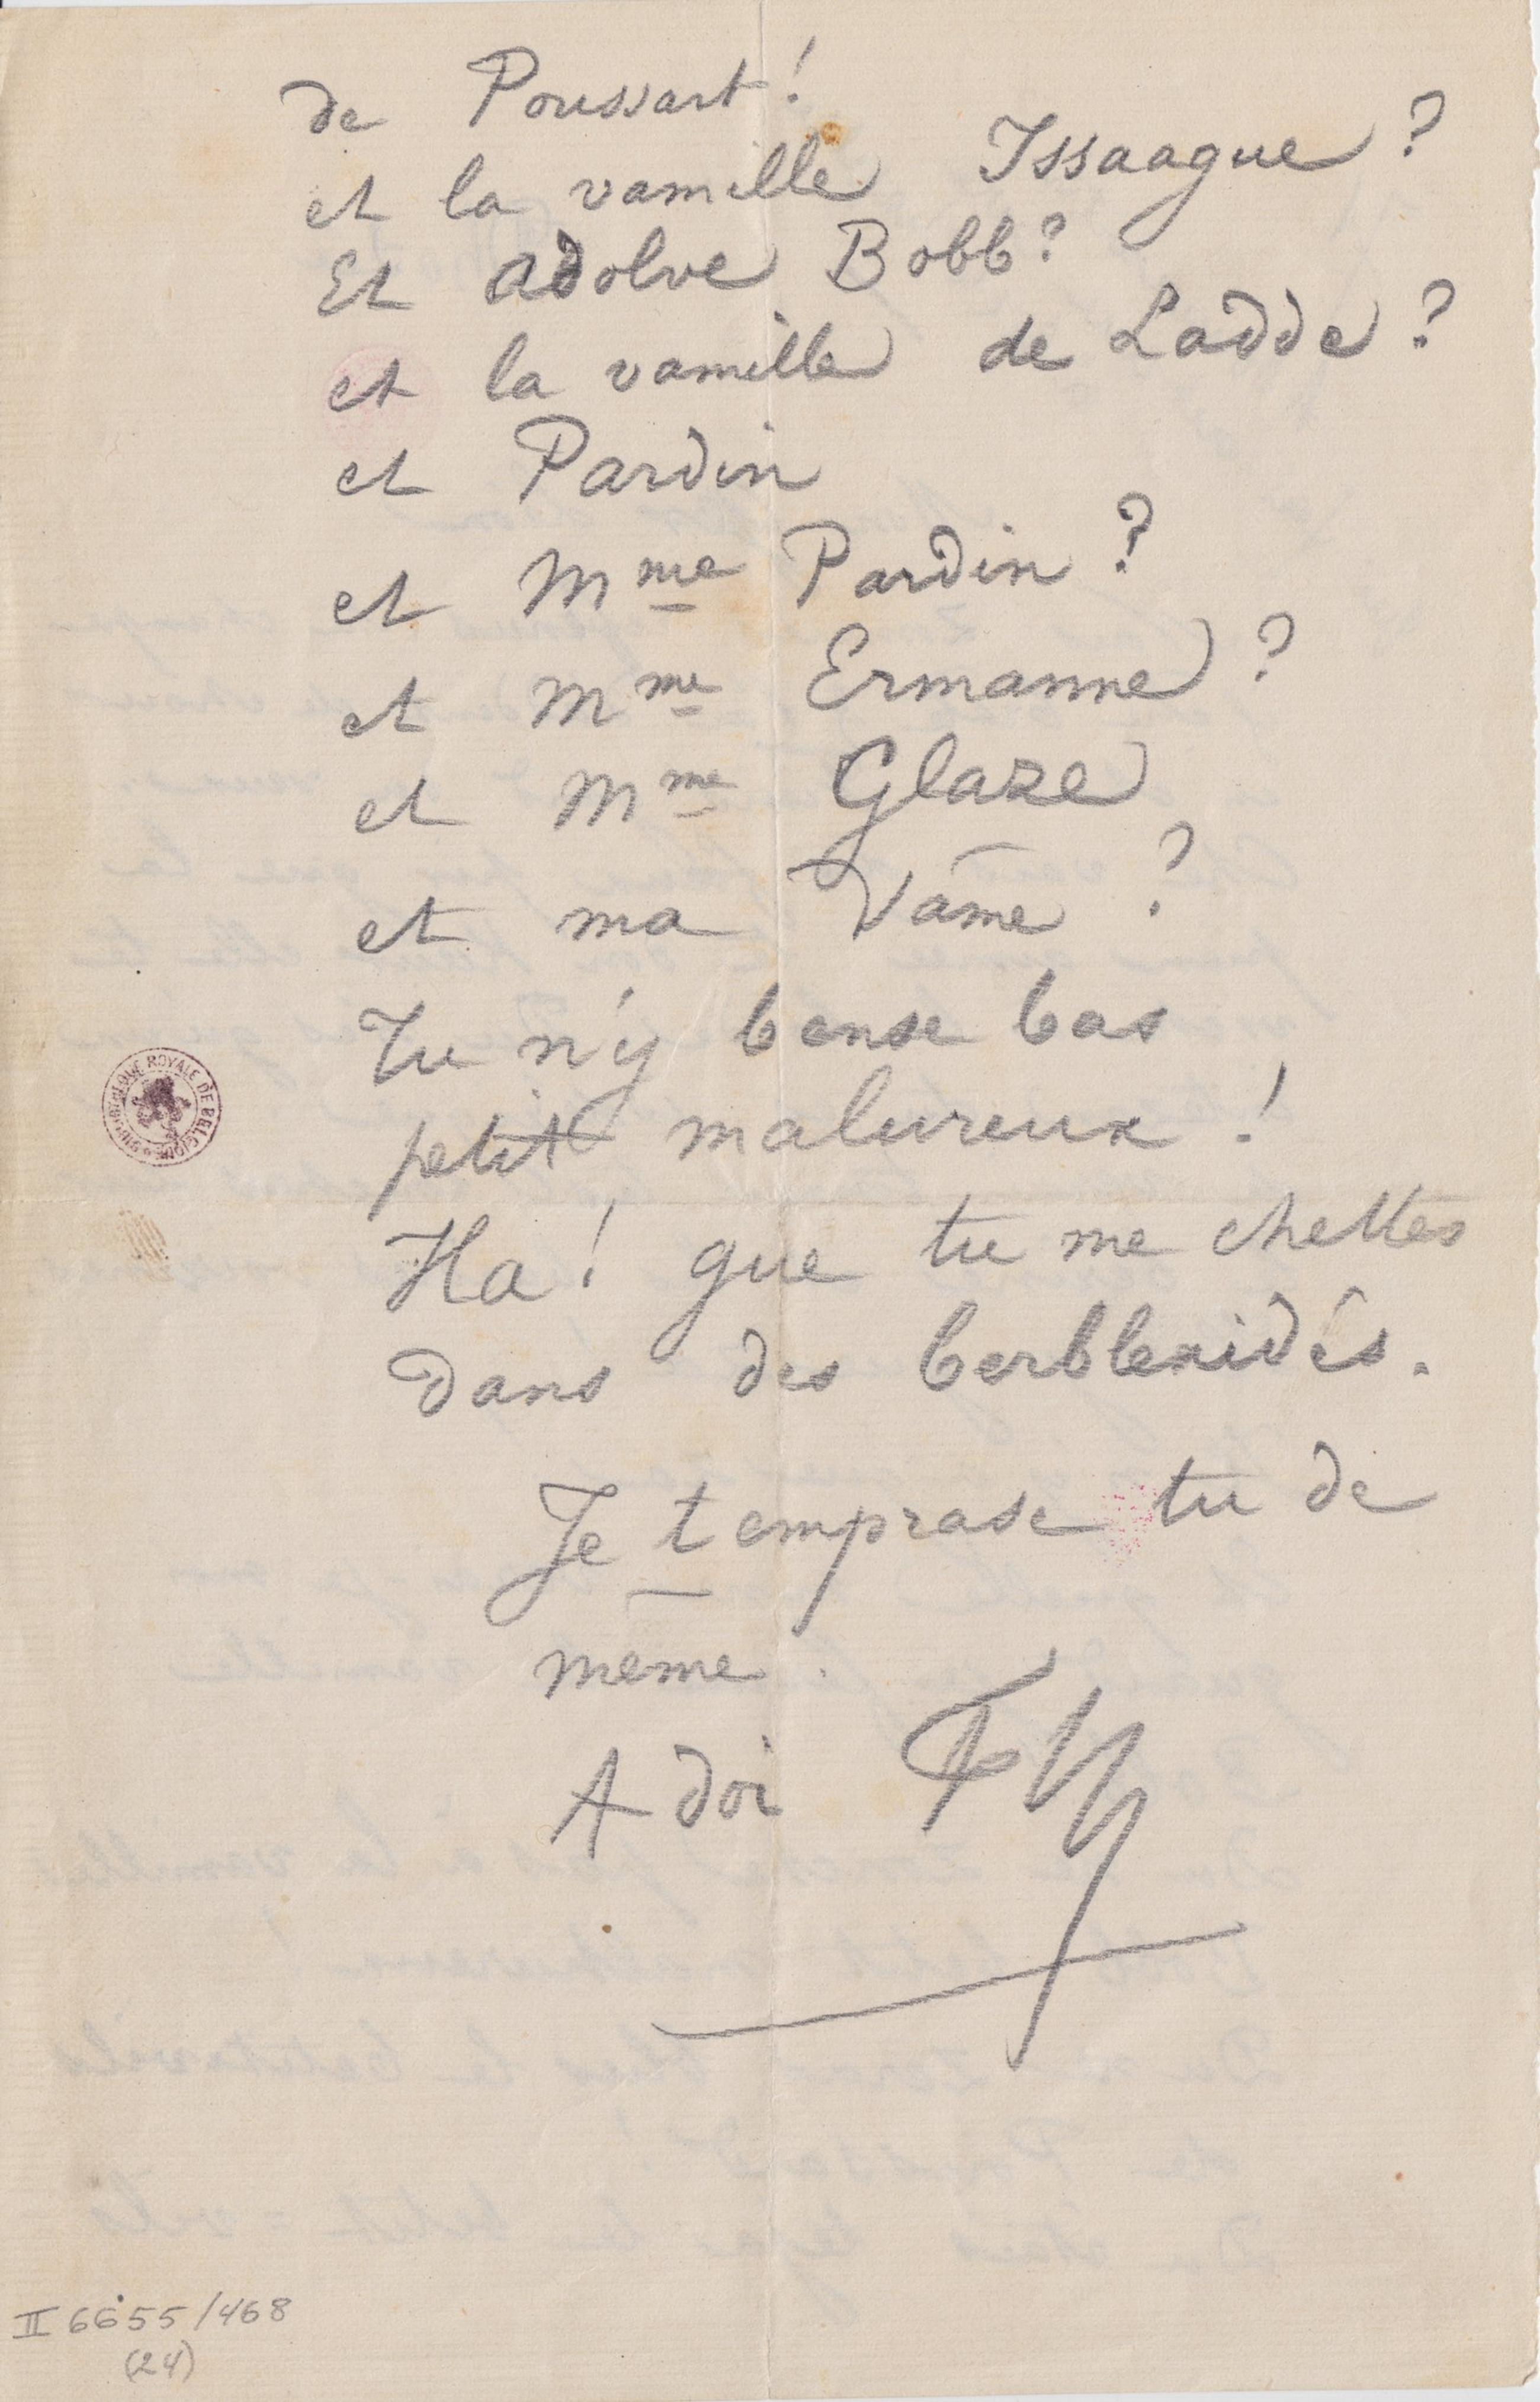 de Poussart!
et la vamille Issaague?
Et Adolve Bobb?
et la vamille de Ladde?
et Pardin
et Mme Pardin?
et Mme Ermanne?
et Mme Glaze
et ma Vâme?
Tu n'y bense bas
petit malureux!
Ha! gue tu me chettes
dans des berblexidés.
Je temprase tu de
meme.
A doi
BIBLIOTHEQUE ROYALE DE BELGIQUE
II 6655/468
(24)